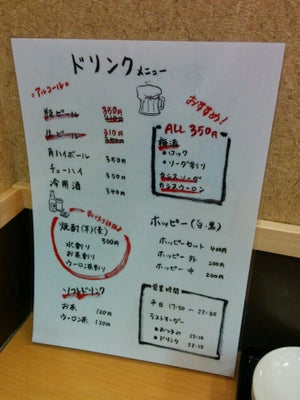 ドリンクメニュー
アルコール
瓶ビール 350円
生ビール 310
角ハイボール 350
チューハイ 350
冷用酒 340
おすすめ!
ALL 350円
梅酒
・ロック
・ソーダ割り
カシスソーダ
カシスウーロン
焼酎(芋)(麦)
300円
水割り
お茶割り
ウーロン茶割り
ホッピー(白・黒)
ホッピーセット 400円
ホッピー 外 200円
ホッピー 中 200円
ソフトドリンク
お茶 120円
ウーロン茶 120円
営業時間
平日 17:30〜22:30
ラストオーダー
・おつまみ
・ドリンク